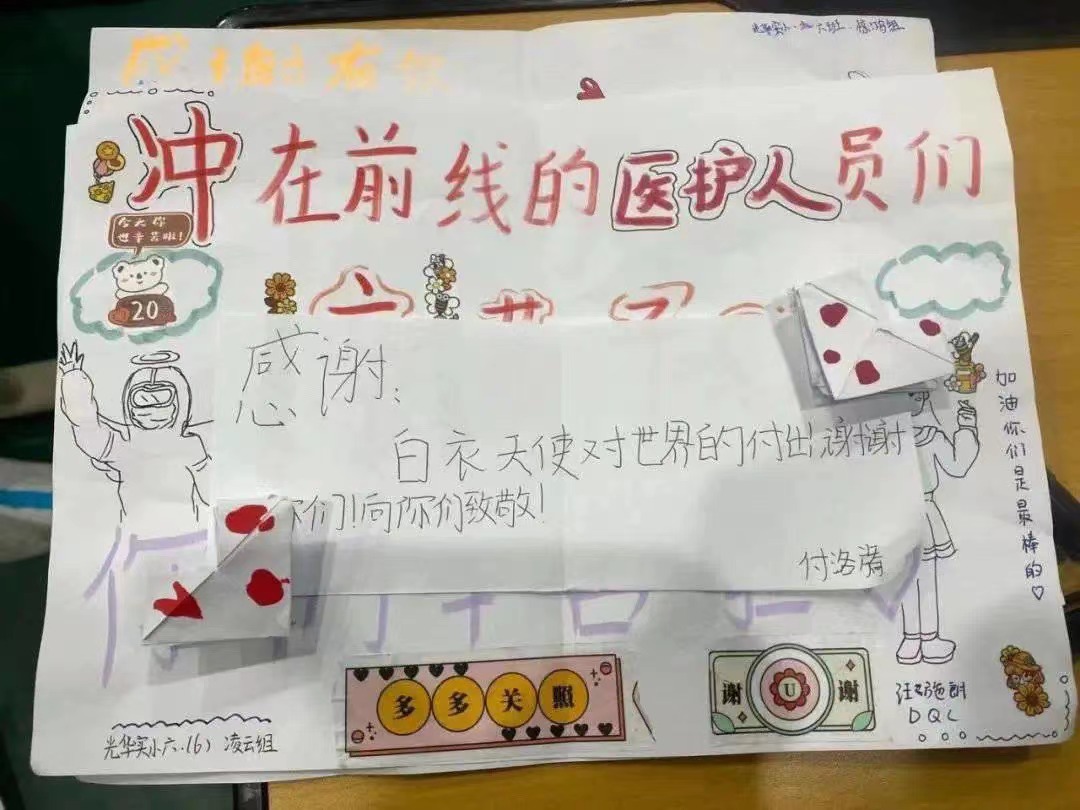 光华实小
冲在前线的医护人员们
今天你
也辛苦啦!
20
感谢:
白衣天使对世界的付出,谢谢
你们!向你们致敬!
付洛漪
加油你们是最棒的♡
多多关照
谢 U 谢
DQC
光华实小六.(6) 凌云组